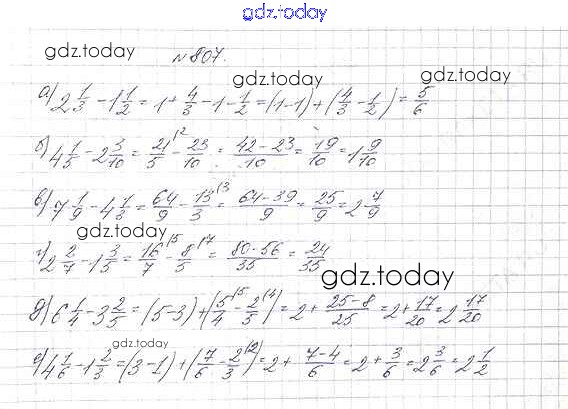 gdz.today
gdz.today
№ 807.
gdz.today
gdz.today
а) 2 1/3 - 1 1/2 = 1 + 4/3 - 1 - 1/2 = (1-1) + (4/3 - 1/2) = 5/6
б) 4 1/5 - 2 3/10 = 21/5 (2 - 23/10 = 42-23/10 = 19/10 = 1 9/10
в) 7 1/9 - 4 1/3 = 64/9 - 13/3 (3 = 64-39/9 = 25/9 = 2 7/9
gdz.today
г) 2 2/7 - 1 3/5 = 16/7 (5 - 8/5 (7 = 80-56/35 = 24/35
gdz.today
д) 6 1/4 - 3 2/5 = (5-3) + (5/4 (5 - 2/5 (4) = 2 + 25-8/25 = 2 + 17/20 = 2 17/20
gdz.today
е) 4 1/6 - 1 2/3 = (3-1) + (7/6 - 2/3 (2) = 2 + 7-4/6 = 2 + 3/6 = 2 3/6 = 2 1/2